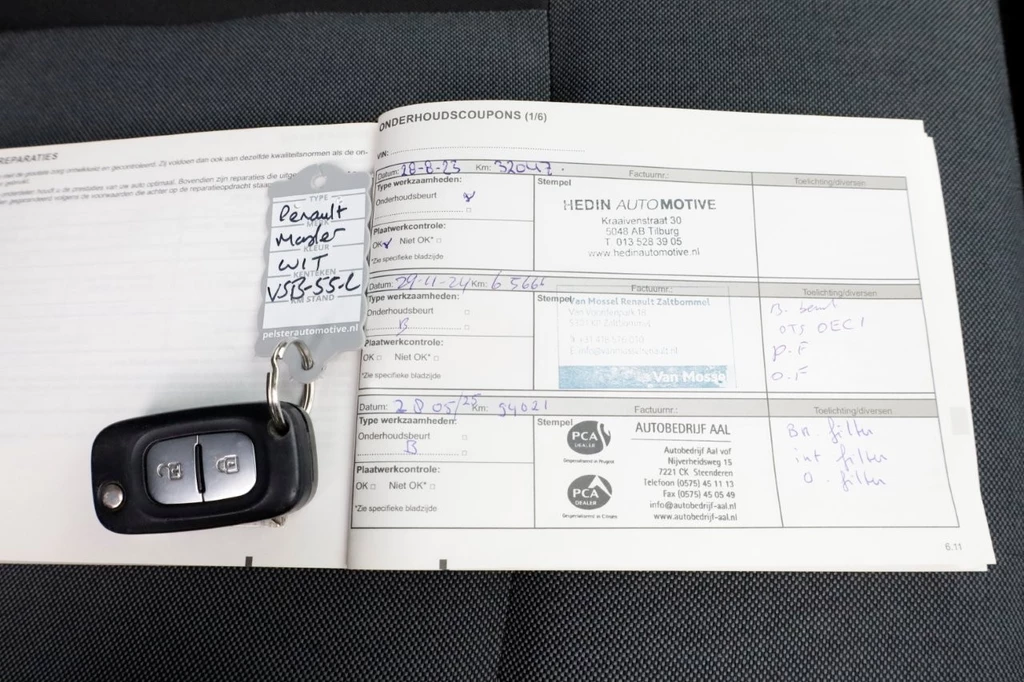 REPARATIES
TYPE
Renault
MERK
Master
KLEUR
WIT
KENTEKEN
VSB-55-L
KM STAND
pelsterautomotive.nl
ONDERHOUDSCOUPONS (1/6)
VIN:
Datum: 28-8-23 Km: 32047. Factuurnr.: Toelichting/diversen
Type werkzaamheden:
Onderhoudsbeurt
Plaatwerkcontrole:
OK Niet OK*
*Zie specifieke bladzijde
Stempel
HEDIN AUTOMOTIVE
Kraaivenstraat 30
5048 AB Tilburg
T. 013 528 39 05
www.hedinautomotive.nl
Datum: 29-11-24 Km: 65661 Factuurnr.: Toelichting/diversen
Type werkzaamheden:
Onderhoudsbeurt
B
Plaatwerkcontrole:
OK Niet OK*
*Zie specifieke bladzijde
Stempel
Van Mossel Renault Zaltbommel
Van Voordenpark 18
5301 KP Zaltbommel
Van Mossel
OTS OEC1
P.F
O.F
Datum: 28 05/25 Km: 94021 Factuurnr.: Toelichting/diversen
Type werkzaamheden:
Onderhoudsbeurt
B
Plaatwerkcontrole:
OK Niet OK*
*Zie specifieke bladzijde
Stempel
PCA
DEALER
Gespecialiseerd in Peugeot
PCA
DEALER
Gespecialiseerd in Citroën
AUTOBEDRIJF AAL
Autobedrijf Aal vof
Nijverheidsweg 15
7221 CK Steenderen
Telefoon (0575) 45 11 13
Fax (0575) 45 05 49
info@autobedrijf-aal.nl
www.autobedrijf-aal.nl
Br. filter
int filter
O. filter
6.11